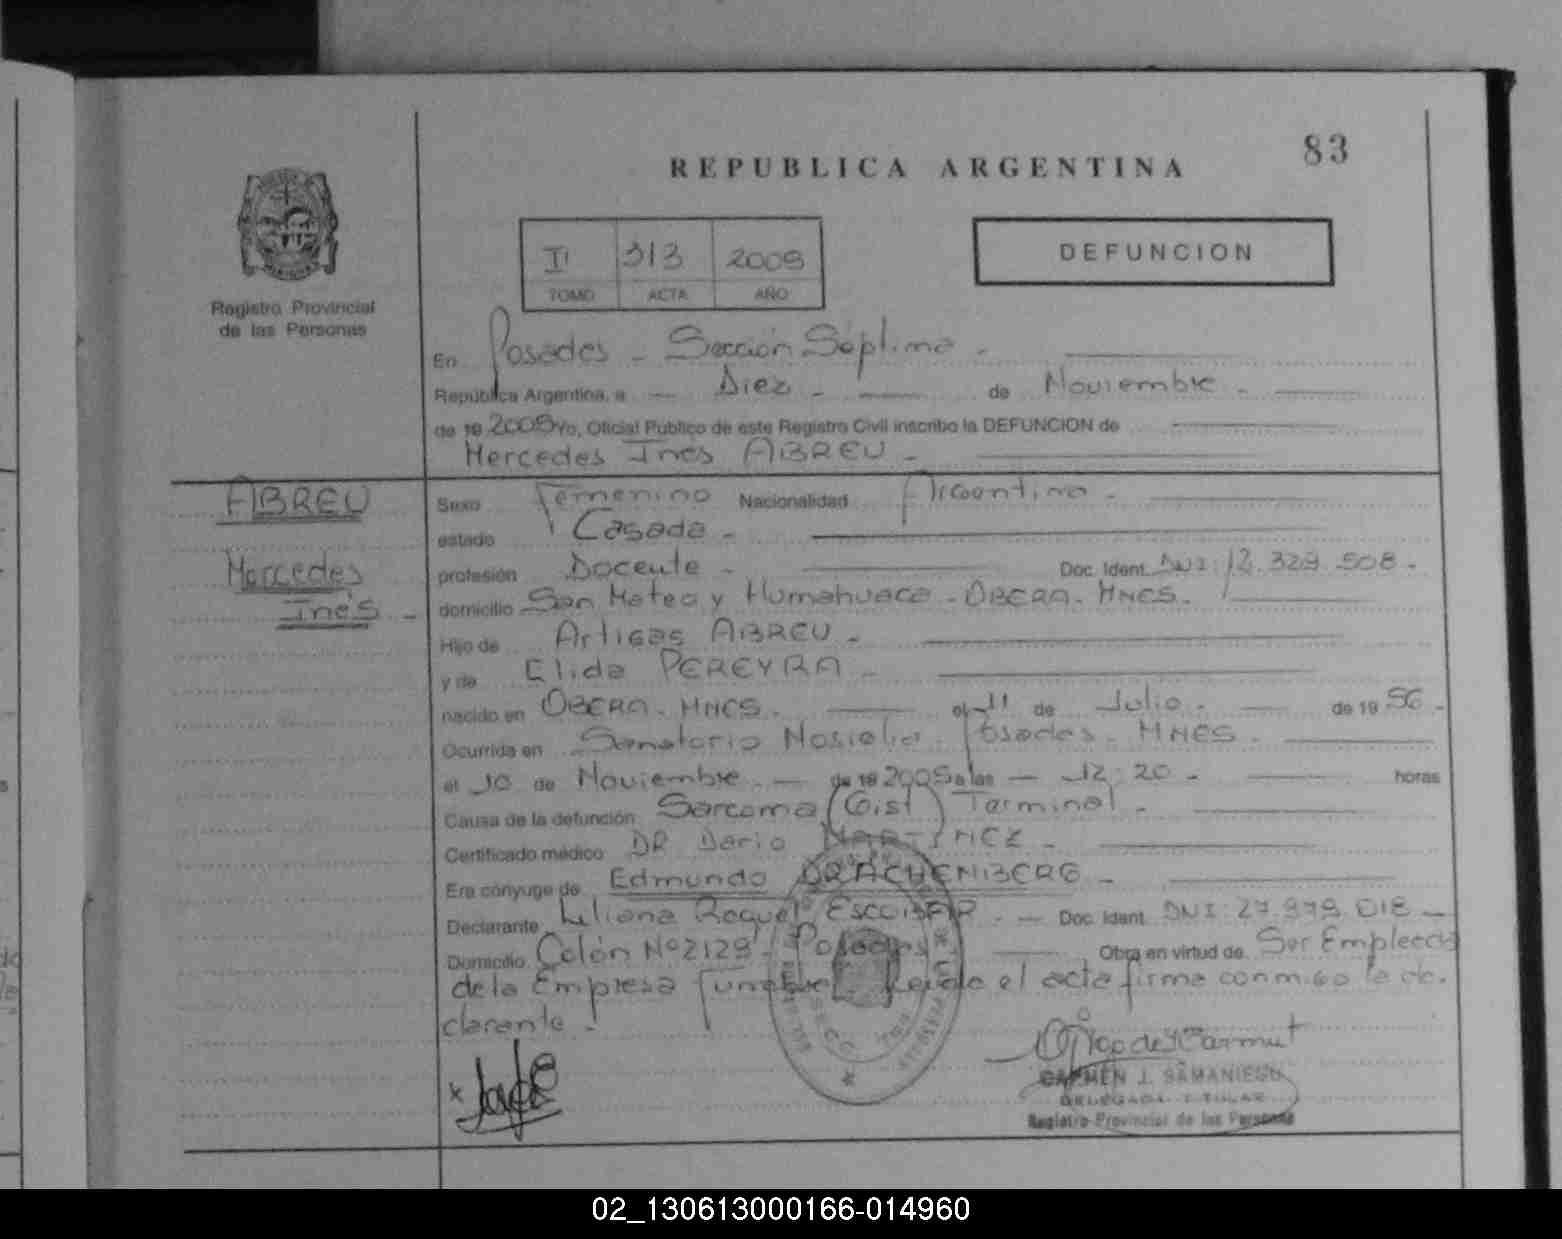 83
REPUBLICA ARGENTINA
II 313 2009
TOMO ACTA AÑO
DEFUNCION
Registro Provincial
de las Personas
En Posadas - Sección Séptima -
República Argentina, a - Diez - de Noviembre -
de 19 2009 Yo, Oficial Público de este Registro Civil inscribo la DEFUNCION de
Mercedes Inés ABREU -
ABREU
Mercedes
Inés -
Sexo Femenino Nacionalidad Argentina -
estado Casada -
profesión Docente - Doc. Ident. DNI: 12.329.508 -
domicilio San Mateo y Humahuaca - OBERA - MNES.
Hijo de Artigas ABREU -
y de Elida PEREYRA -
nacido en OBERA - MNES. - el 11 de Julio - de 19 56 -
Ocurrida en Sanatorio Nosiglia - Posadas - MNES.
el 10 de Noviembre - de 19 2009 a las - 12:20 - horas
Causa de la defunción Sarcoma (Gist) Terminal -
Certificado médico DR Dario MARTINEZ -
Era cónyuge de Edmundo DRACHENBERG -
Declarante Liliana Raquel ESCOBAR - Doc. Ident. DNI: 27.979.018 -
Domicilio Colón Nº 2129 - Posadas Obra en virtud de Ser Empleada
de la Empresa Funebre. Leida el acta firma conmigo la de-
clarante -
x
CARMEN J. SAMANIEGO
DELEGADA TITULAR
Registro Provincial de las Personas
02_130613000166-014960